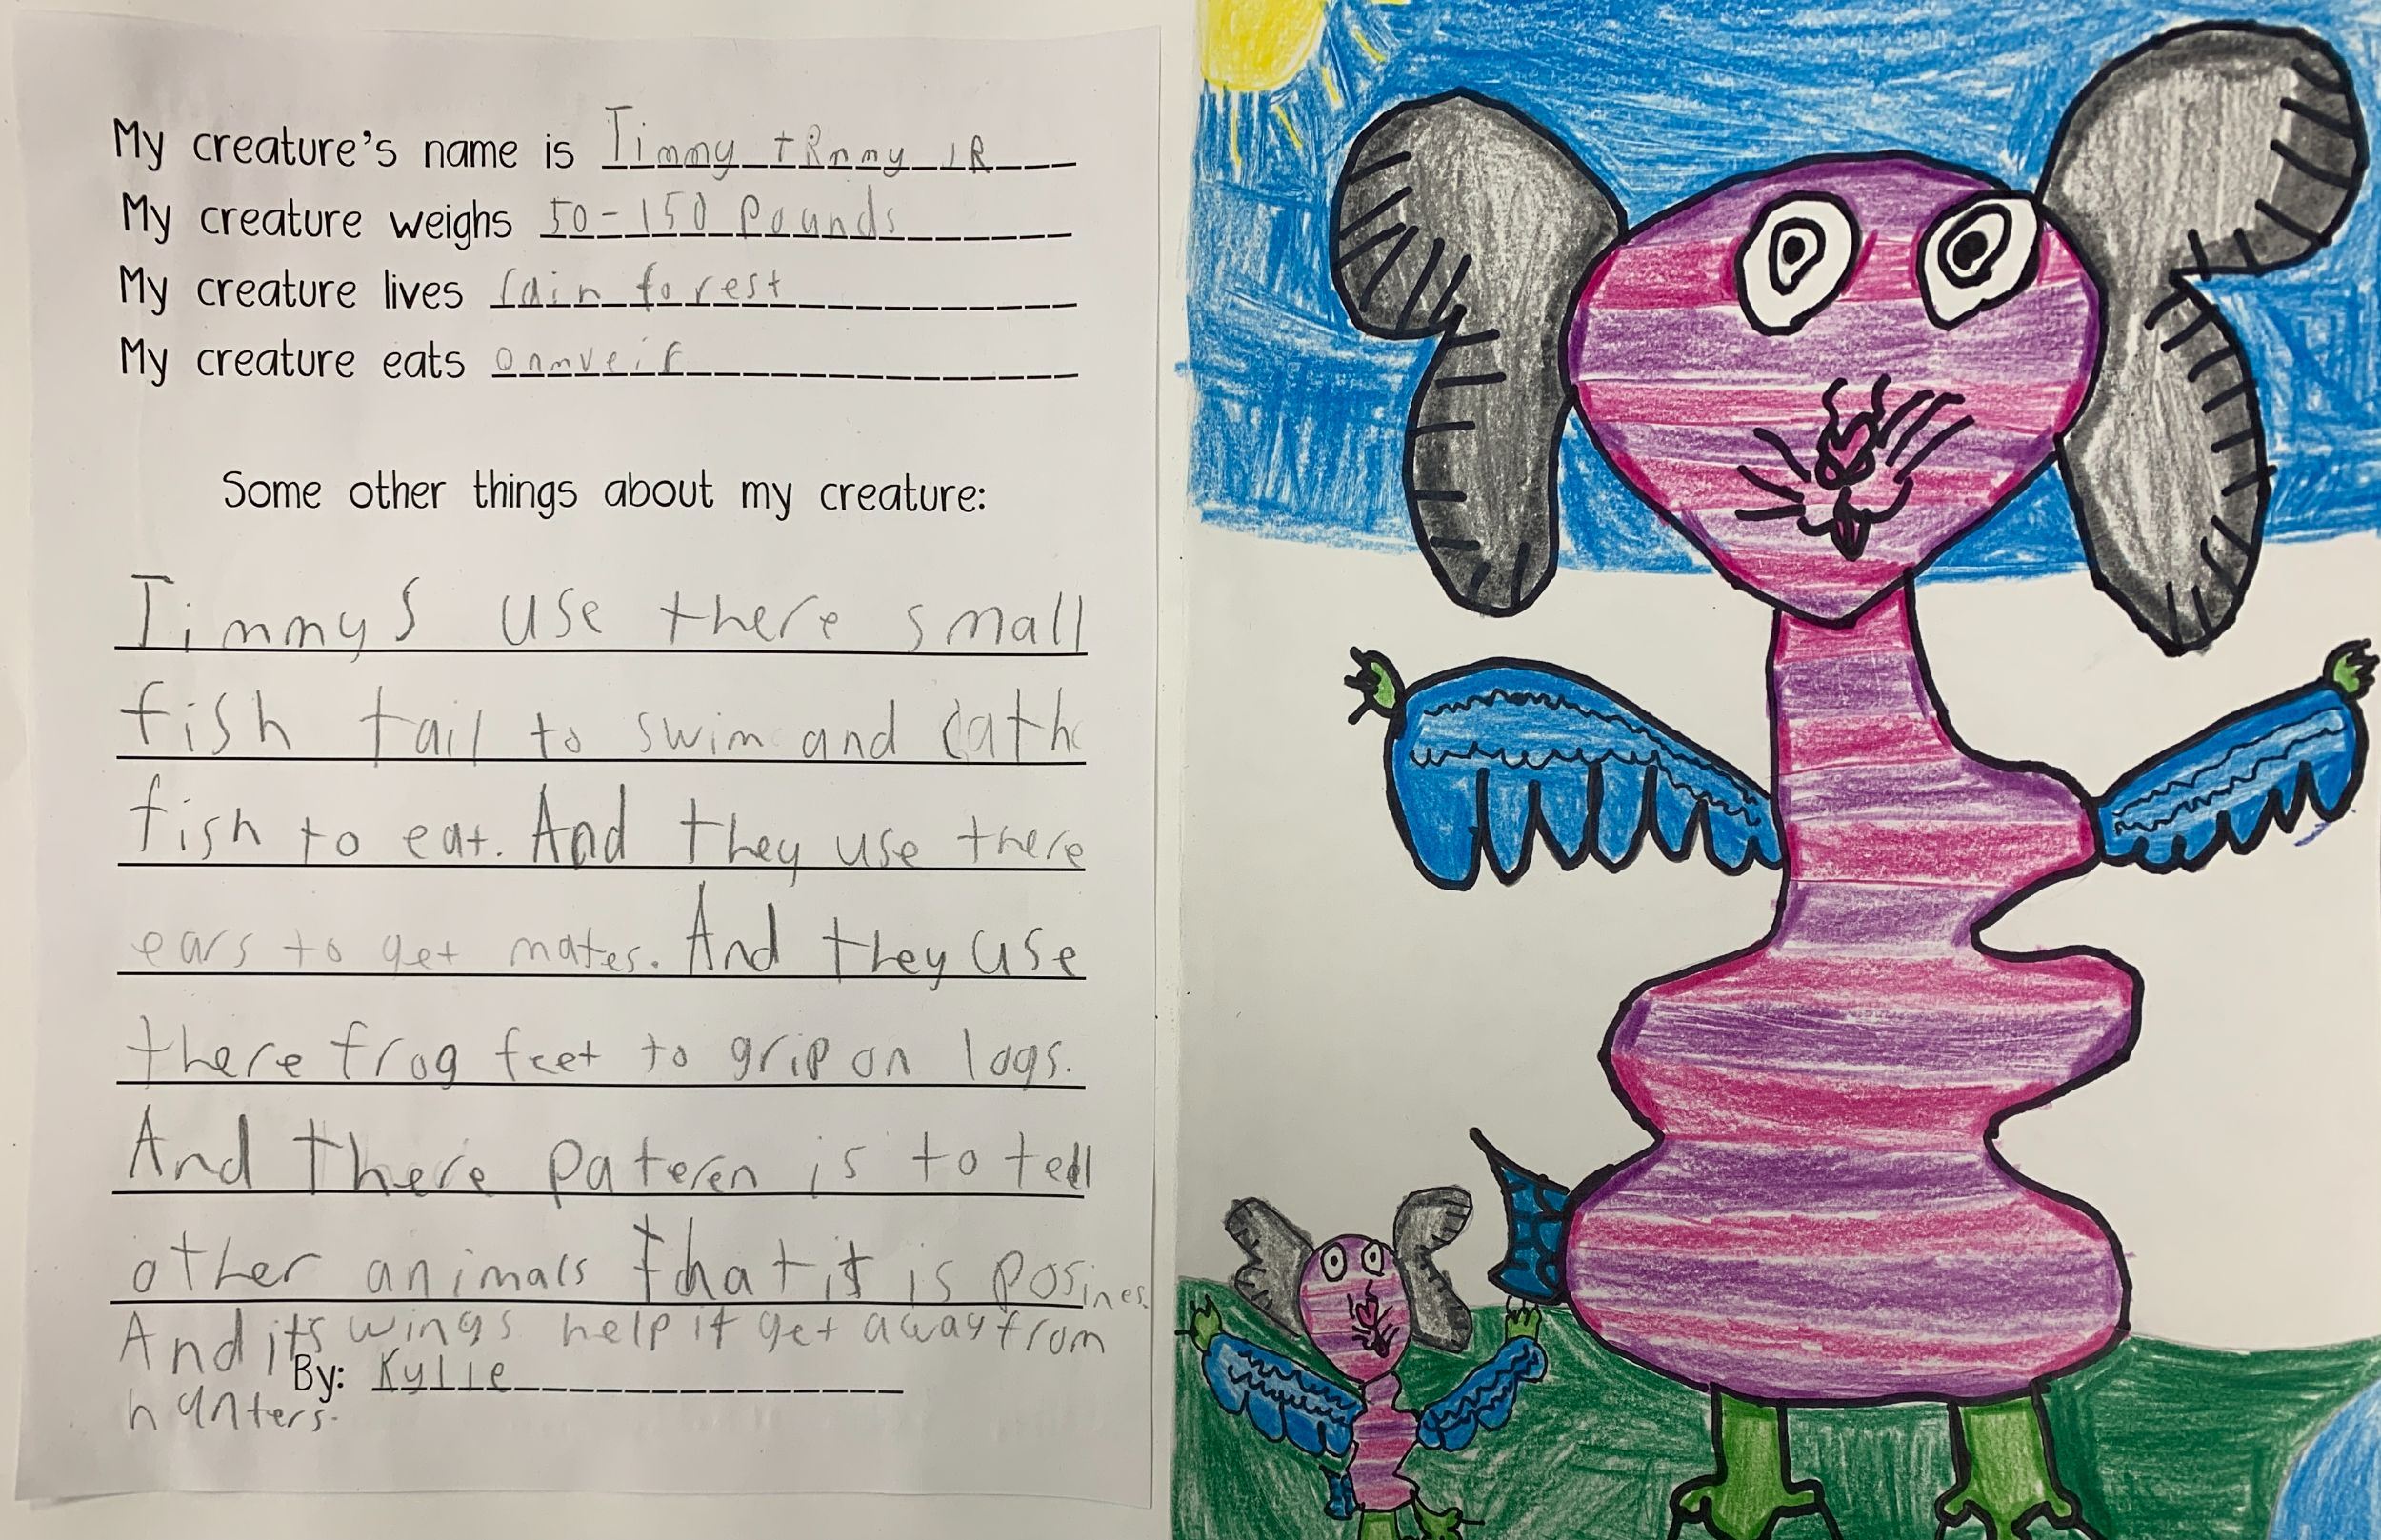 My creature's name is Timmy tRnmy JR
My creature weighs 50-150 pounds
My creature lives rain forest
My creature eats onmveir
Some other things about my creature:
Timmys use there small
fish tail to swim and cathc
fish to eat. And they use there
ears to get mates. And they use
there frog feet to grip on logs.
And there pateren is to tell
other animals that it is posines.
And its wings help it get away from
By: Kylie
hunters.